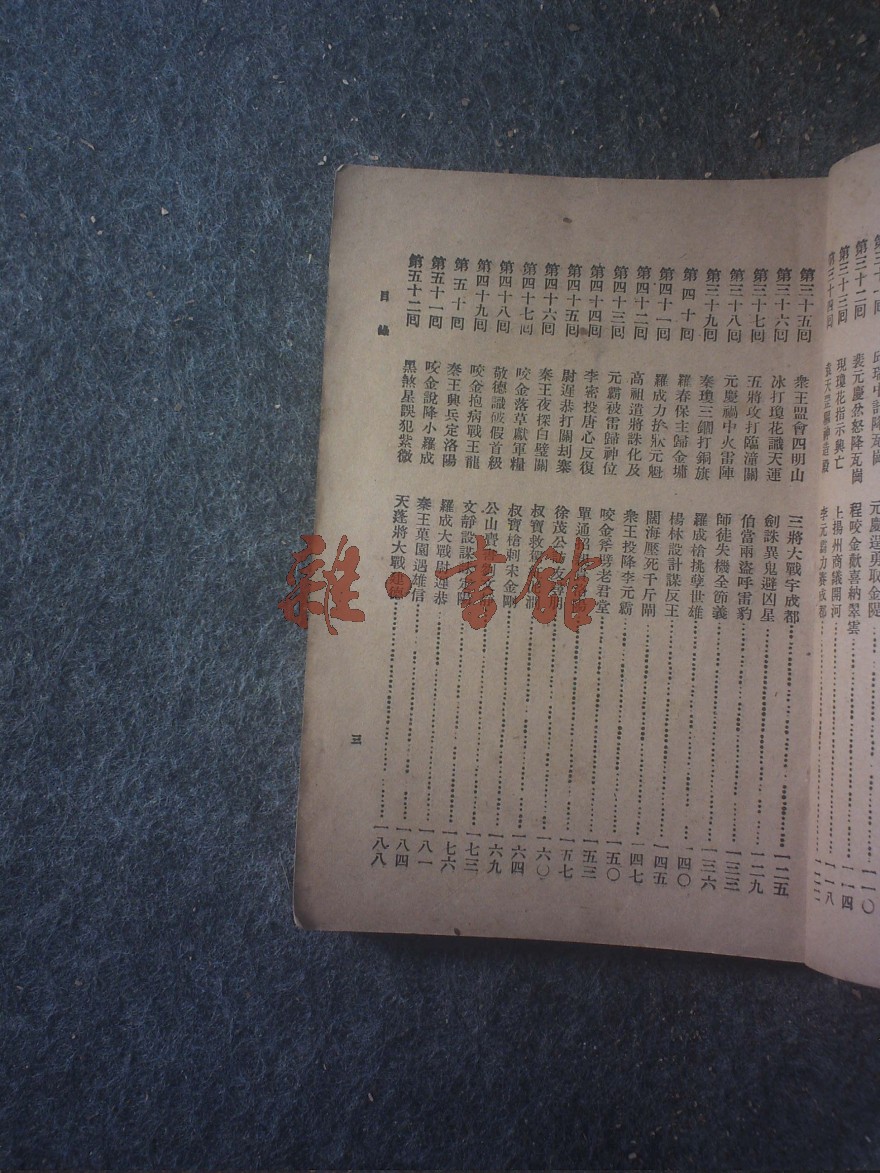 第三十二回 裴元慶忿怒降瓦崗 程咬金歡喜納翠雲 一一四
第三十三回 現瓊花指示興亡 上揚州商議開河 一一八
第三十四回 李元霸力賽成都
第三十五回 衆王盟會四明山 三將大戰宇成都 一二五
第三十六回 冰打瓊花識天運 劍誅異鬼避凶星 一二九
第三十七回 五將攻打臨潼關 伯當兩盜呼雷豹 一三三
第三十八回 元慶禍中火雷陣 師徒失機全節義 一三六
第三十九回 秦瓊三鐗打銅旗 羅成槍挑孽世雄 一四〇
第四十回 羅春保主歸金墉 楊林設計謀反王 一四五
第四十一回 羅成力搶狀元魁 闊海壓死千斤閘 一四七
第四十二回 高祖遣將誅化及 衆王投降李元霸 一五〇
第四十三回 元霸被雷歸神位 咬金斧劈老君堂 一五三
第四十四回 李密投唐心反復 單通招 一五七
第四十五回 尉遲恭打關刦寨 徐茂公 一六〇
第四十六回 秦王夜探白璧關 叔寶救駕 一六四
第四十七回 咬金落草獻軍糧 叔寶槍刺宋金剛 一六九
第四十八回 敬德識破假首級 公山 一七三
第四十九回 咬金抱病戰王龍 文靜設謀 一七六
第五十回 秦王興兵定洛陽 羅成大戰尉遲恭 一八一
第五十一回 咬金說降小羅成 秦王菓園遇雄信 一八四
第五十二回 黑煞星誤犯紫微 天蓬將大戰 一八八
目錄
三
雜·書館